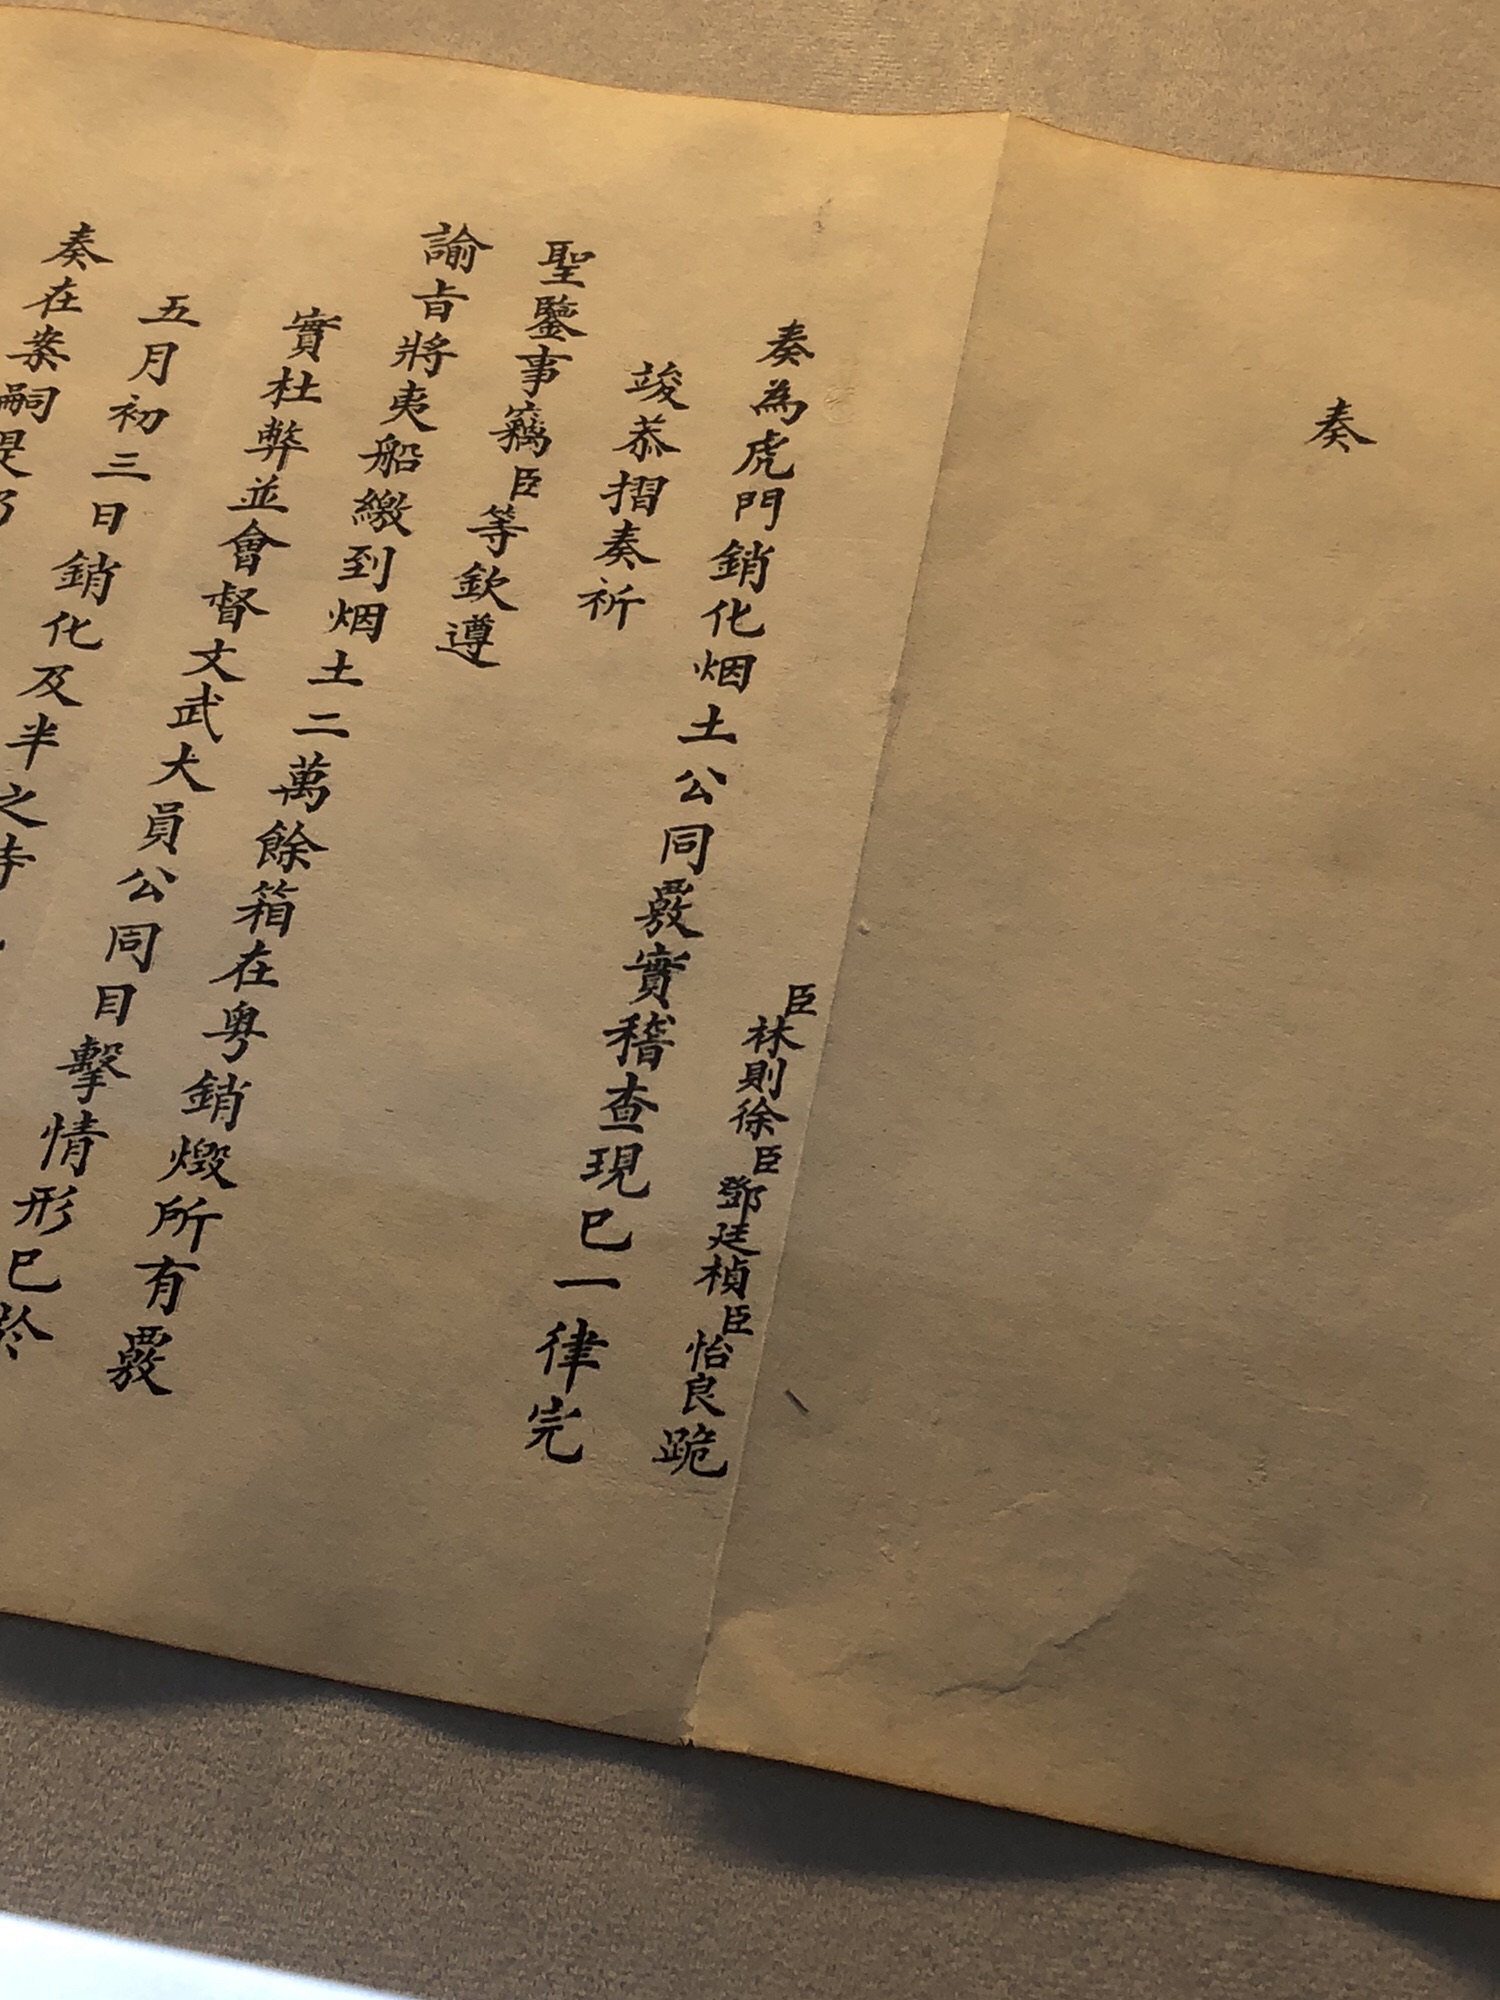 奏
臣林則徐臣鄧廷楨臣怡良跪
奏為虎門銷化烟土公同覈實稽查現已一律完
竣恭摺奏祈
聖鑒事竊臣等欽遵
諭旨將夷船繳到烟土二萬餘箱在粵銷燬所有覈
實杜弊並會督文武大員公同目擊情形已於
五月初三日銷化及半之時
奏在案嗣是仍